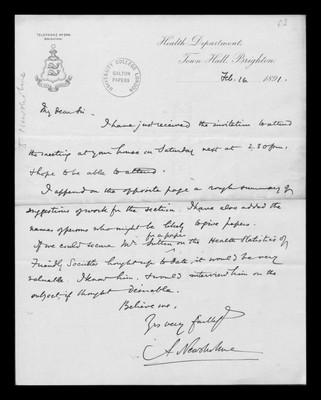 TELEPHONE
BRIGHTON.
Health Department,
Town Hall, Brighton,
Feb. 16 1891.
UNIVERSITY COLLEGE LONDON
GALTON
PAPERS
A Newsholme
My dear Sir.
I have just received the invitation to attend
the meeting at your house on Saturday next at 2.30 p.m.
& hope to be able to attend.
I append on the opposite page a rough summary of
suggestions of work for the section. I have also added the
names of persons who might be likely to give papers.
If we could secure a paper by Mr Sutton on the Health Statistics of
Friendly Societies brought up to date, it would be very
valuable. I know him, & would interview him on the
subject if thought desirable.
Believe me,
Yrs very faithfy
A. Newsholme